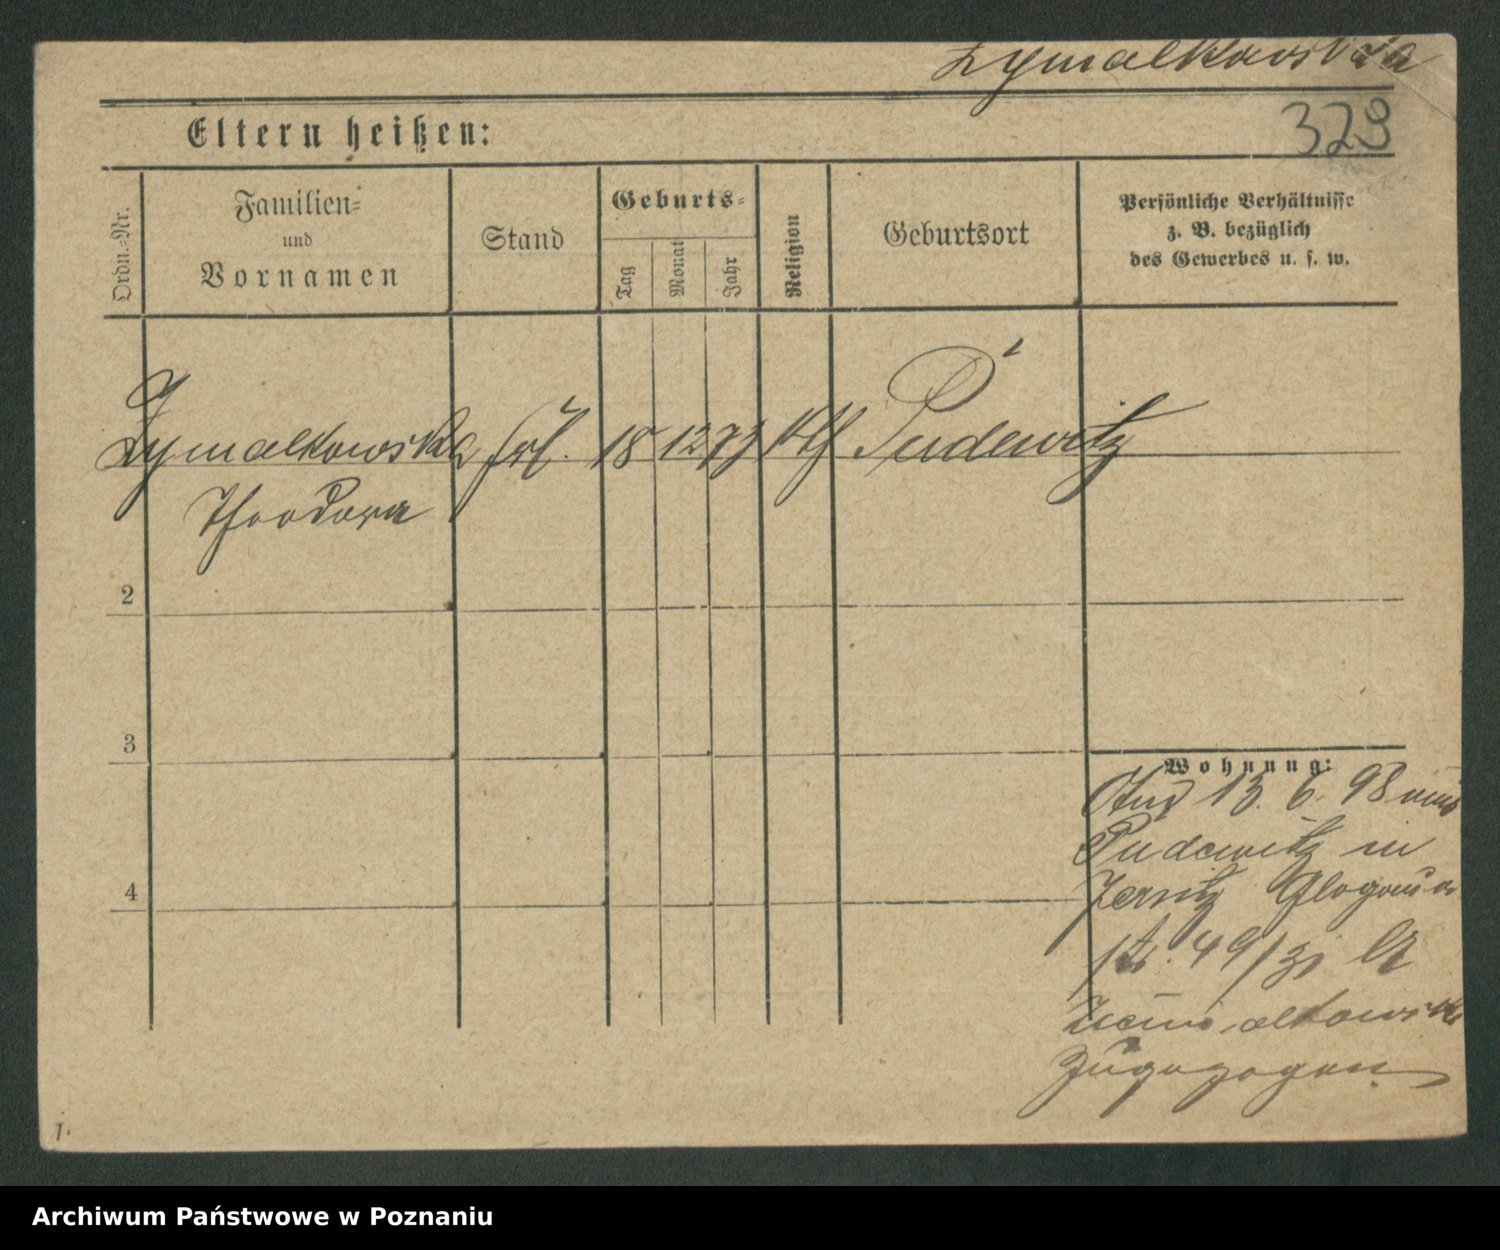 Zymalkowska
329
Eltern heißen:
Ordn.-Nr.
Familien- und Vornamen
Stand
Geburts-
Tag
Monat
Jahr
Religion
Geburtsort
Persönliche Verhältnisse
z. B. bezüglich
des Gewerbes u. s. w.
Zymalkowska Frl. 18 12 73 kth Pudewitz
Theodora
2
3
4
Wohnung:
13. 6. 98 aus
Pudewitz in
Jersitz Glogauer
str. 49/ bei
zugezogen
1.
Archiwum Państwowe w Poznaniu